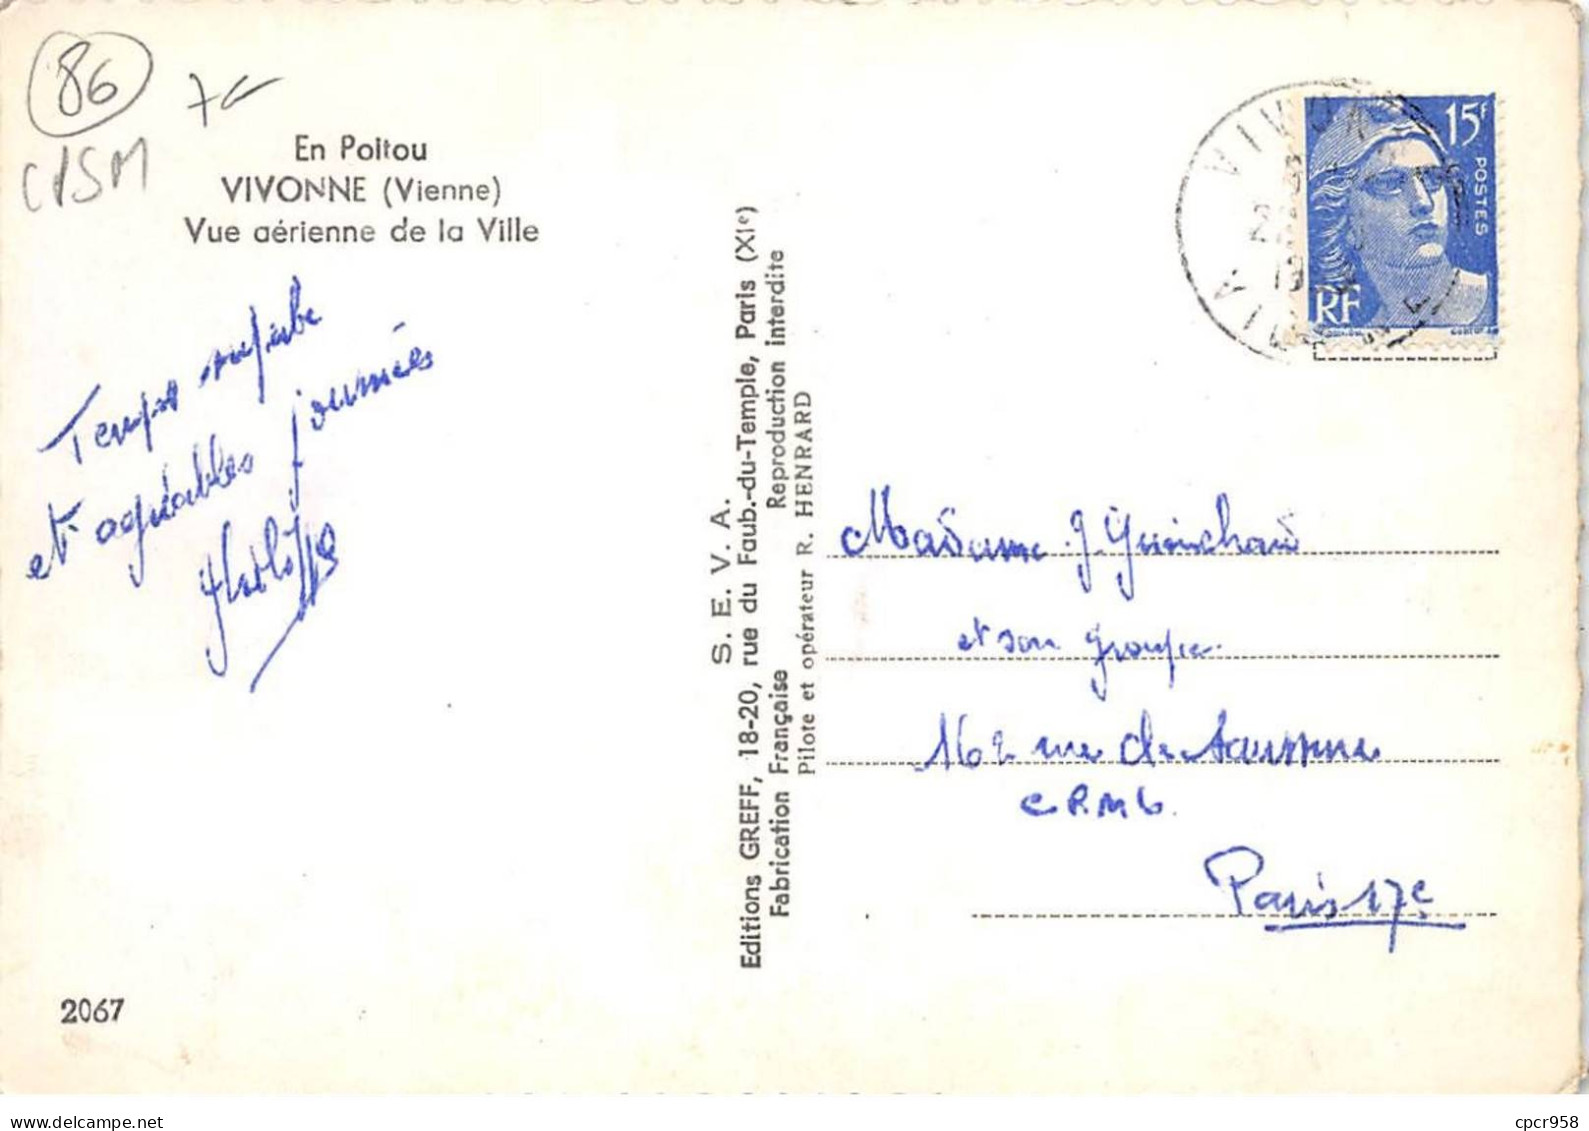 86
CPSM
7€
En Poitou
VIVONNE (Vienne)
Vue aérienne de la Ville
Temps superbe
et agréables journées
2067
S. E. V. A.
Editions GREFF, 18-20, rue du Faub.-du-Temple, Paris (XIe)
Fabrication Française Reproduction interdite
Pilote et opérateur R. HENRARD
VIVON
VIENNE
15F
POSTES
RF
Madame J. Guinchard
et son groupe
162 rue de Saussure
Paris 17e
cpcr958